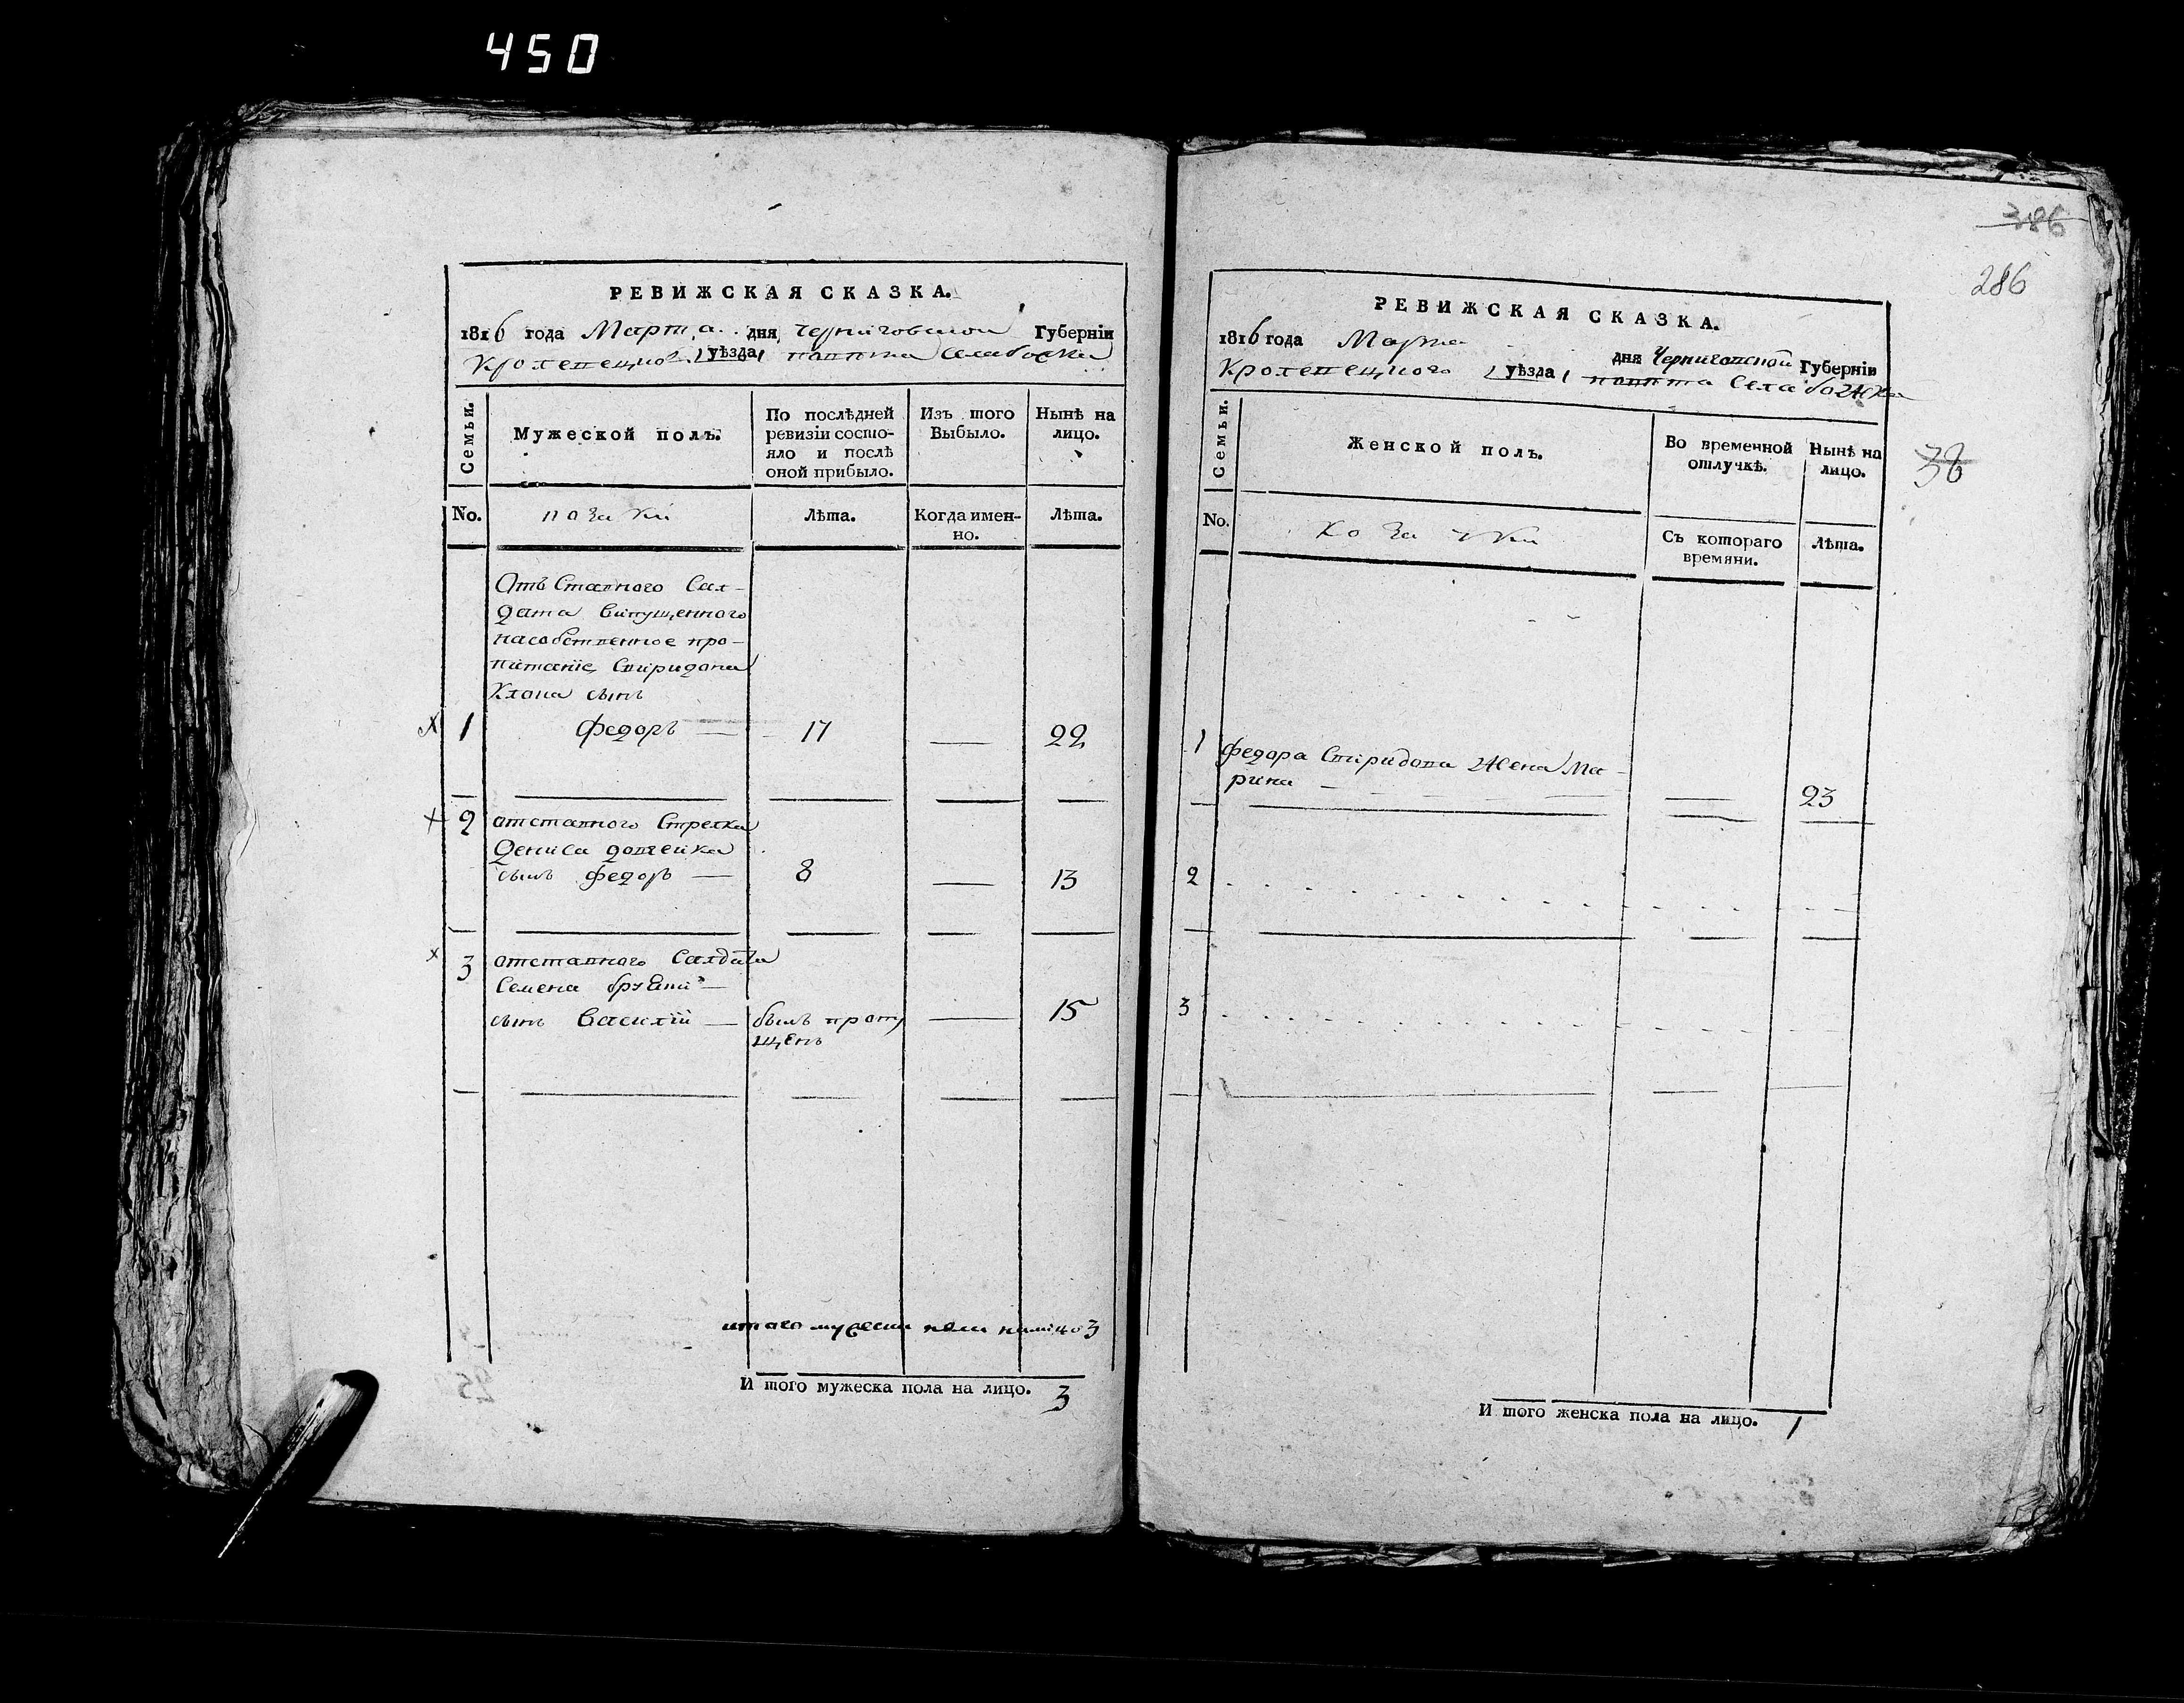 450
РЕВИЖСКАЯ СКАЗКА.
1816 года Марта дня Черниговской Губерніи
Кролевецкого уѣзда
Семьи.
Мужеской полъ.
По послѣдней ревизіи состояло и послѣ оной прибыло.
Изъ того Выбыло.
Нынѣ на лицо.
No.
козаки
Лѣта.
Когда именно.
Лѣта.
Отъ Ставного Сал-
дата Випущенного
насобственное про-
питаніе Спиридона
сынъ
1 Федоръ 17 — 22
2 отставного Стрелка
Дениса
сынъ Федоръ 8 — 13
3 отставного Салдата
Семена
сынъ Василій — былъ пропу
щенъ — 15
итого мужеска пола налицо 3
И того мужеска пола на лицо. 3
386
286
РЕВИЖСКАЯ СКАЗКА.
1816 года Марта дня Черниговской Губерніи
Кролевецкого уѣзда
38
Семьи.
Женской полъ.
Во временной отлучкѣ.
Нынѣ на лицо.
No.
козачки
Съ котораго времяни.
Лѣта.
1 Федора Спиридона жена Ма-
рина — 23
2
3
И того женска пола на лицо. 1